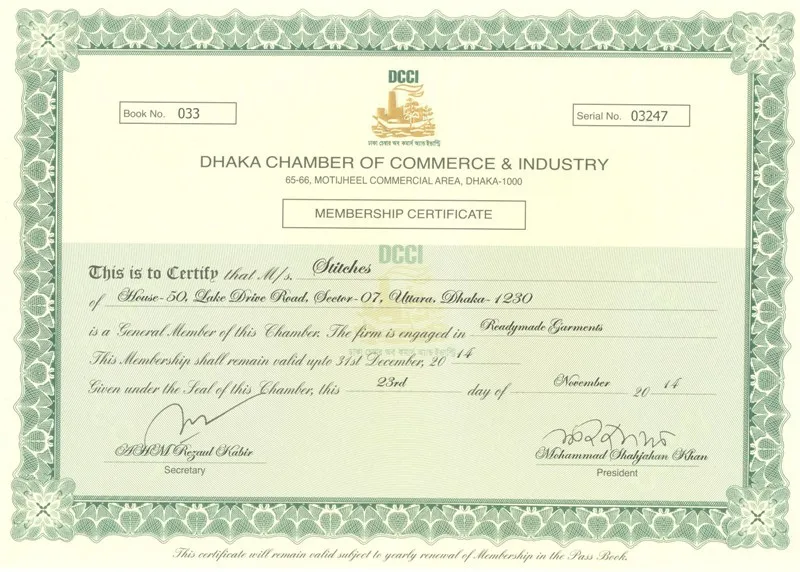 DCCI
Book No. 033
Serial No. 03247
ঢাকা চেম্বার অব কমার্স অ্যান্ড ইন্ডাস্ট্রি
DHAKA CHAMBER OF COMMERCE & INDUSTRY
65-66, MOTIJHEEL COMMERCIAL AREA, DHAKA-1000
MEMBERSHIP CERTIFICATE
DCCI
This is to Certify that M/s. Stitches
of House-50, Lake Drive Road, Sector-07, Uttara, Dhaka-1230
is a General Member of this Chamber. The firm is engaged in Readymade Garments
This Membership shall remain valid upto 31st December, 20 14
Given under the Seal of this Chamber, this 23rd day of November 20 14
AHM Rezaul Kabir
Secretary
Mohammad Shahjahan Khan
President
This certificate will remain valid subject to yearly renewal of Membership in the Pass Book.